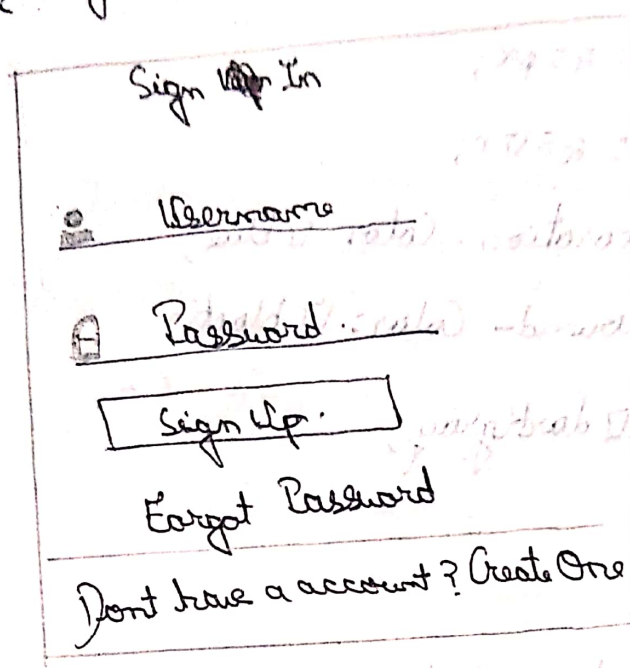 Sign In
Username
Password.
Sign Up.
Forgot Password
Dont have a account? Create One